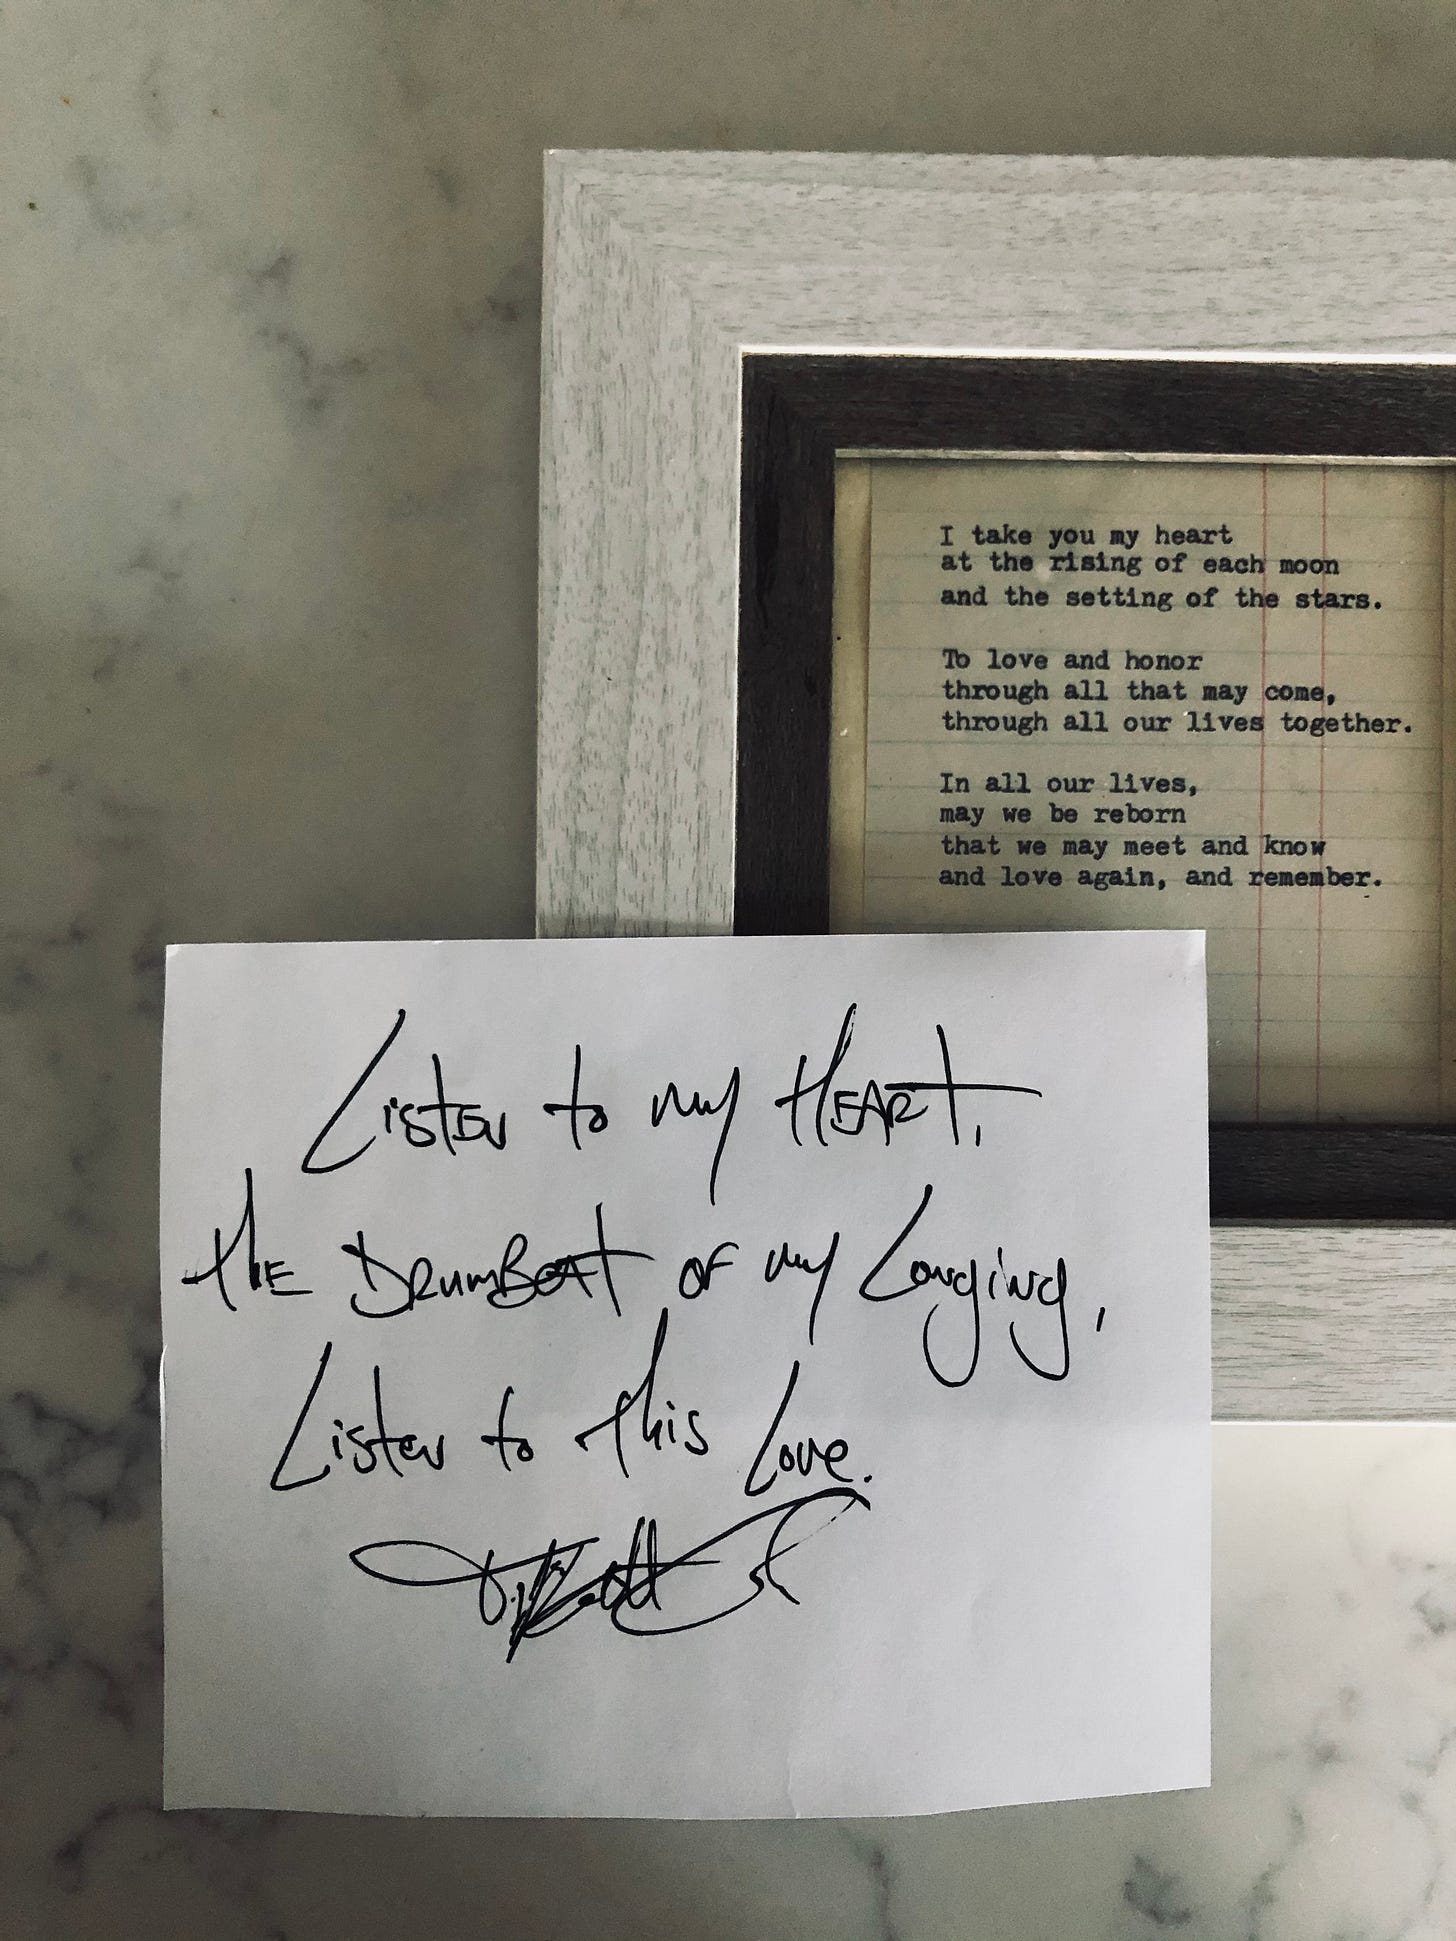 I take you my heart
at the rising of each moon
and the setting of the stars.
To love and honor
through all that may come,
through all our lives together.
In all our lives,
may we be reborn
that we may meet and know
and love again, and remember.
Listen to my HEART,
the DRumBeAt of my Longing,
Listen to this Love.